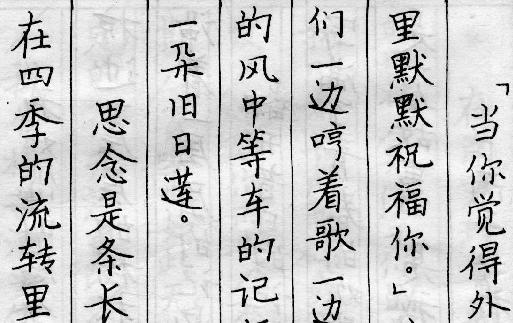 「当你觉得外
里默默祝福你。」
们一边哼着歌一边
的风中等车的记
一朵旧日莲。
思念是条长
在四季的流转里